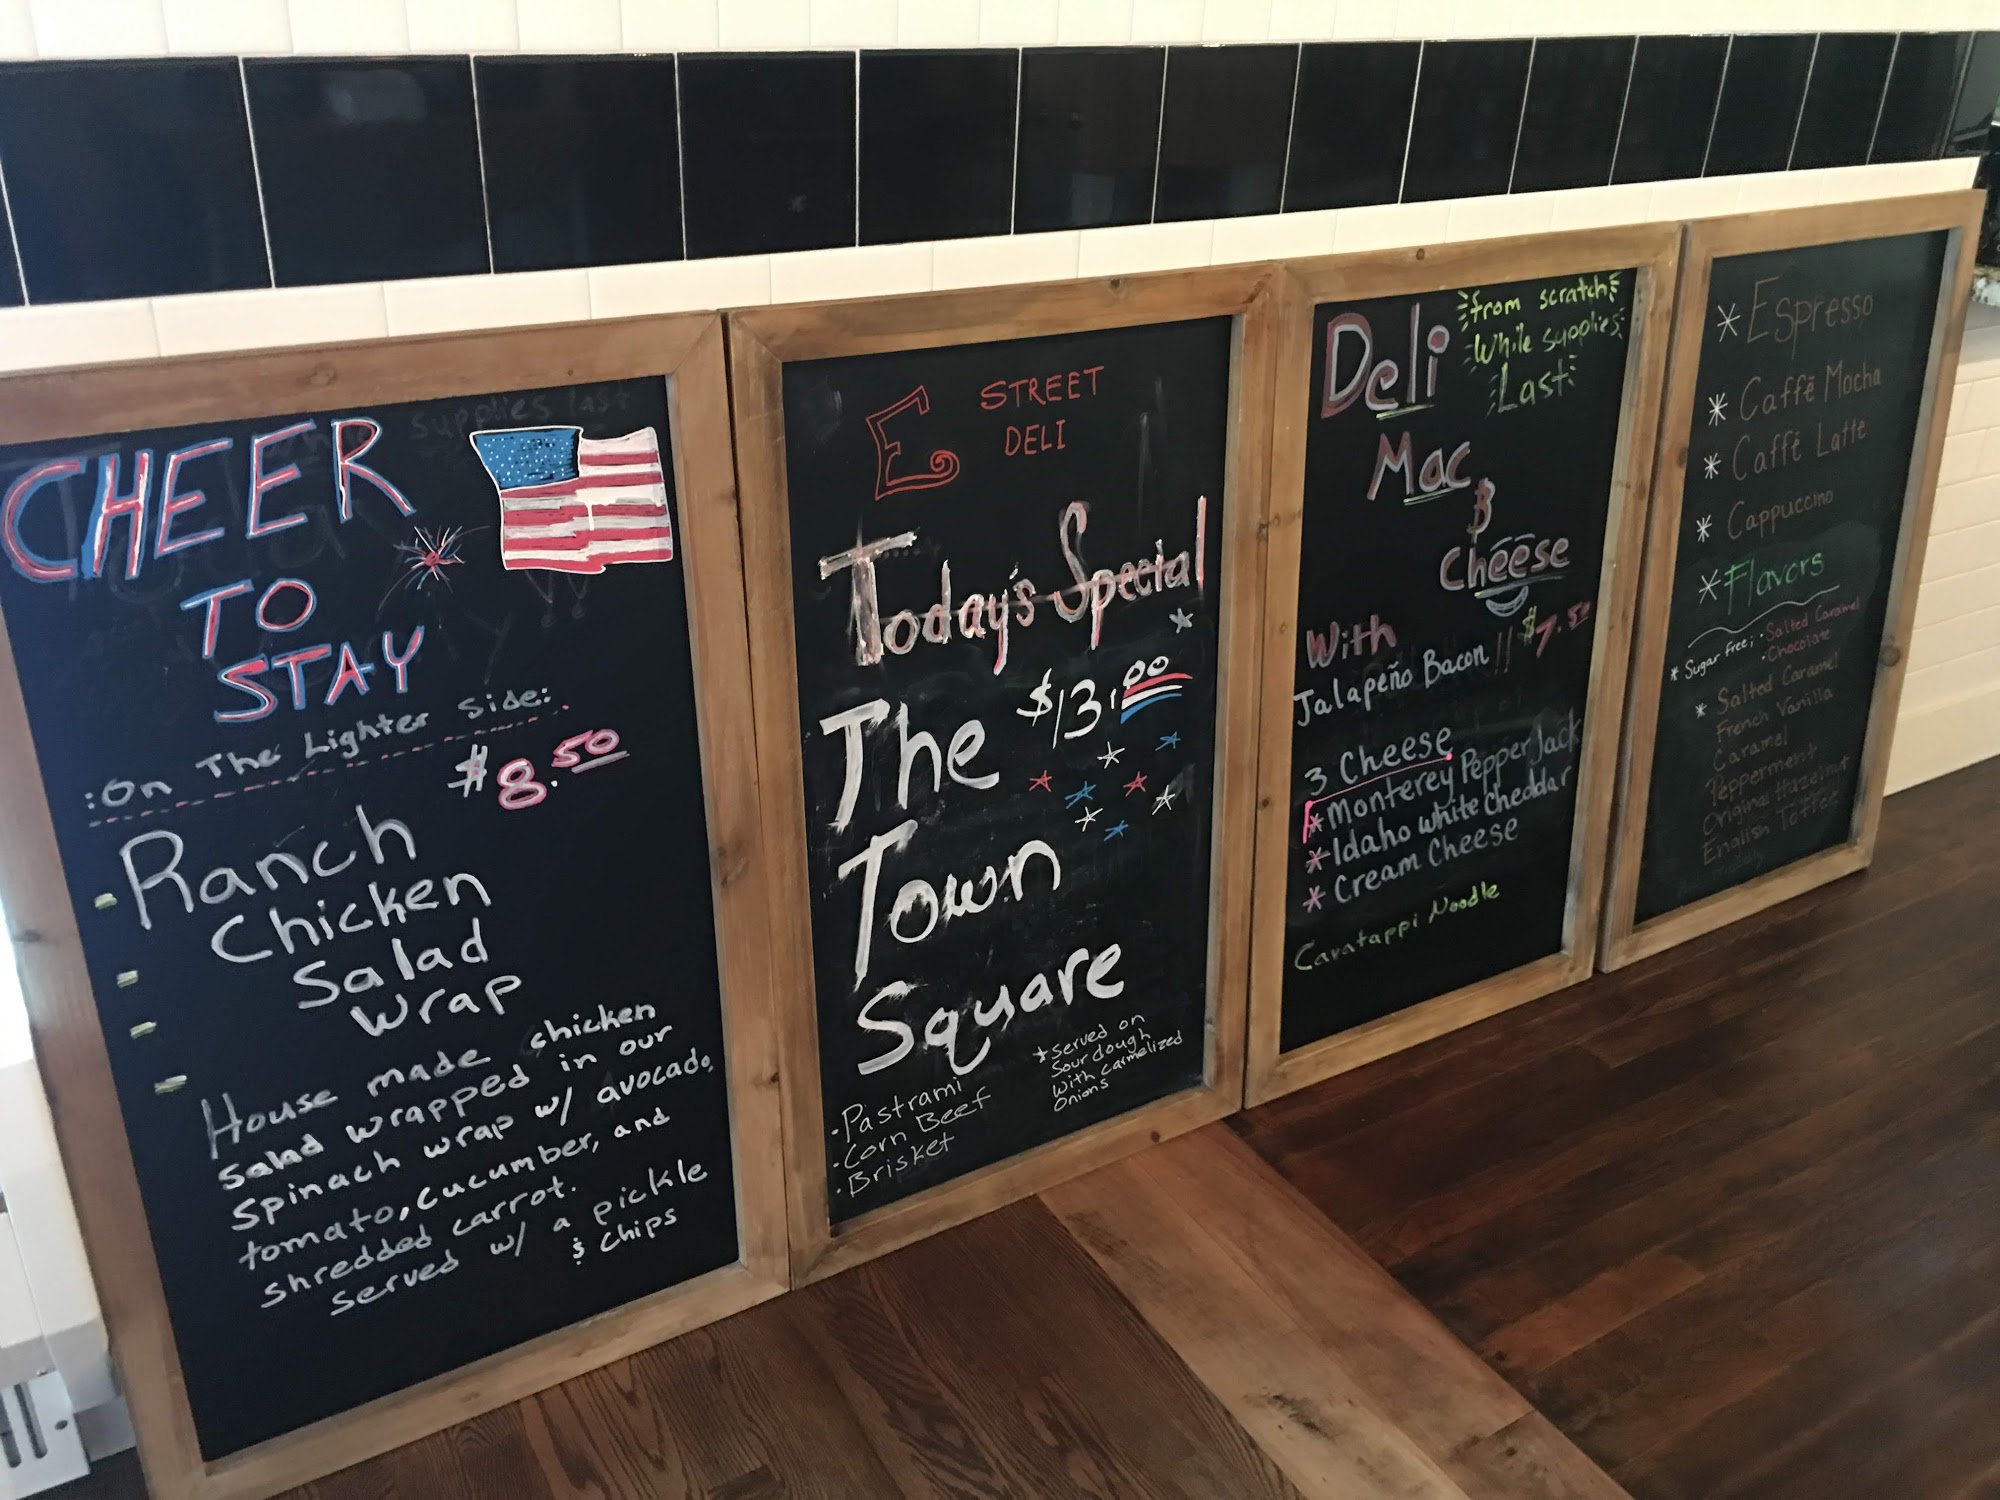 CHEER
TO
STAY
:On The Lighter Side:
$8.50
Ranch
Chicken
Salad
Wrap
House made chicken
salad wrapped in our
spinach wrap w/ avocado,
tomato, cucumber, and
shredded carrot.
served w/ a pickle
& chips
E STREET
DELI
Today's Special
The $13.00
Town
Square
• Pastrami
• Corn Beef
• Brisket
*served on
Sourdough
with carmelized
Onions
Deli
from scratch
While supplies
Last
Mac
&
Cheese
With $7.50
Jalapeño Bacon!!
3 Cheese
*Monterey Pepper Jack
*Idaho white Cheddar
*Cream Cheese
Cavatappi Noodle
*Espresso
*Caffé Mocha
*Caffé Latte
*Cappuccino
*Flavors
*Sugar free; • Salted Caramel
• Chocolate
*Salted Caramel
French Vanilla
Caramel
Pepperment
Original Hazelnut
English Toffee